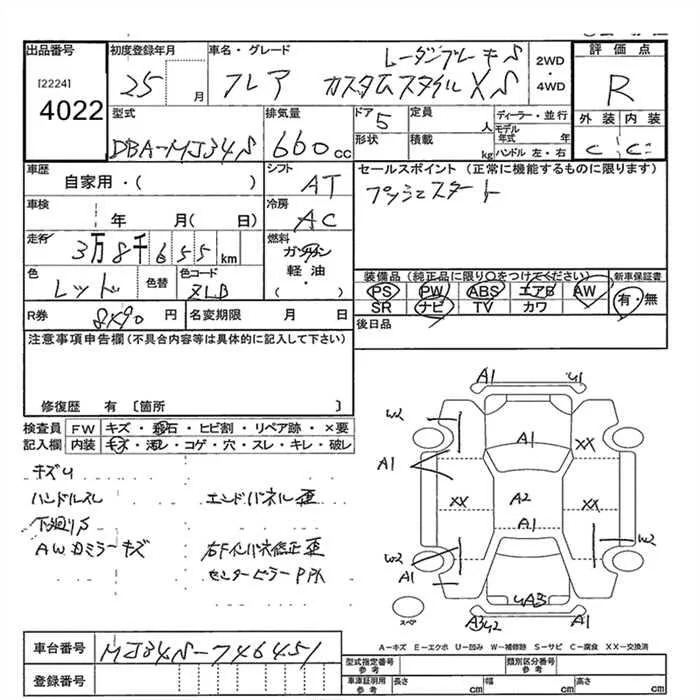 出品番号 初度登録年月 車名・グレード レーダーブレーキS 2WD・4WD 評価点
[2224] 4022 25 月 フレア カスタムスタイルXS R
型式 排気量 ドア 定員 ディーラー・並行 外装 内装
DBA-MJ34S 660cc 5 人 モデル年式 年 C C
形状 積載 kg ハンドル 左・右
車歴 シフト セールスポイント (正常に機能するものに限ります)
自家用・( ) AT プッシュスタート
車検 年 月( 日) 冷房 AC
走行 3万8千655km 燃料 ガソリン 軽油・( )
色 レッド 色替 色コード ZLB
装備品(純正品に限り○をつけてください) 新車保証書
PS PW ABS エアB AW 有・無
SR ナビ TV カワ
R券 8490円 名変期限 月 日
後日品
注意事項申告欄(不具合内容等は具体的に記入して下さい)
修復歴 有 〔箇所 〕
検査員 FW キズ・飛石・ヒビ割・リペア跡・×要
記入欄 内装 キズ・汚レ・コゲ・穴・スレ・キレ・破レ
キズU
ハンドルスレ エンドパネル歪
下廻りS
AW カミラーキズ
センターピラー
A1 U1
W2 A1
A1 XX
XX A2 XX
A1
W2 W2
A1
UA3
A3U2 A1
スペア
A-キズ E-エクボ U-凹み W-補修跡 S-サビ C-腐食 XX-交換済
車台番号 MJ34S-746451
登録番号
型式指定番号 参考 類別区分番号 参考
車庫証明用 参考 長さ cm 幅 cm 高さ cm